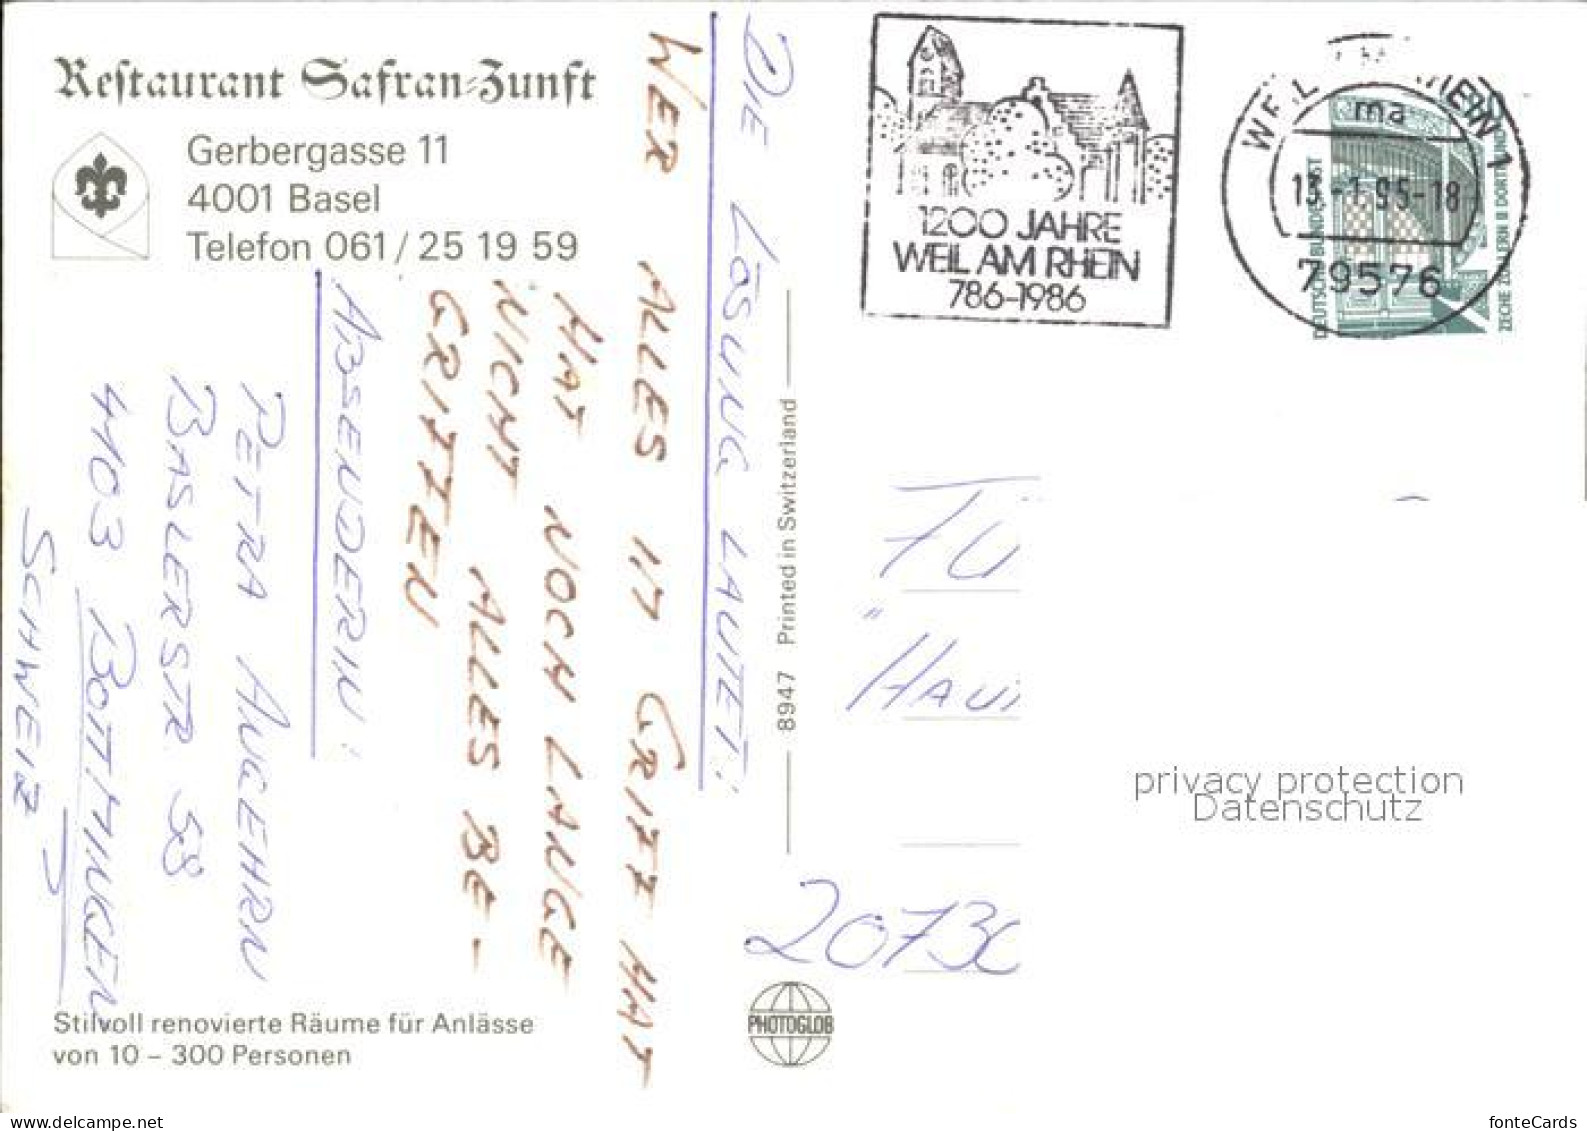 Restaurant Safran-Zunft
Gerbergasse 11
4001 Basel
Telefon 061/25 19 59
DIE LÖSUNG LAUTET:
WER ALLES IM GRIFF HAT
HAT NOCH LANGE
NICHT ALLES BE-
GRIFFEN
ABSENDERIN:
PETRA ANGEHRN
BASLERSTR 58
4103 BOTTMINGEN
SCHWEIZ
Stilvoll renovierte Räume für Anlässe
von 10 – 300 Personen
8947 Printed in Switzerland
PHOTOGLOB
1200 JAHRE
WEIL AM RHEIN
786-1986
RHEIN 1
ma
13.-1.95-18
79576
DEUTSCHE BUNDESPOST
ZECHE ZOLLERN II DORTMUND
FÜ
"HAU
20730
privacy protection
Datenschutz
www.delcampe.net
fonteCards